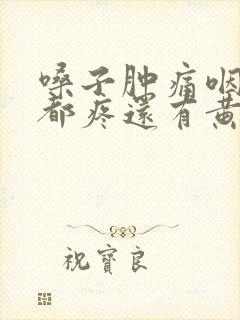 嗓子肿痛咽
都疼還有黄
祝寶良